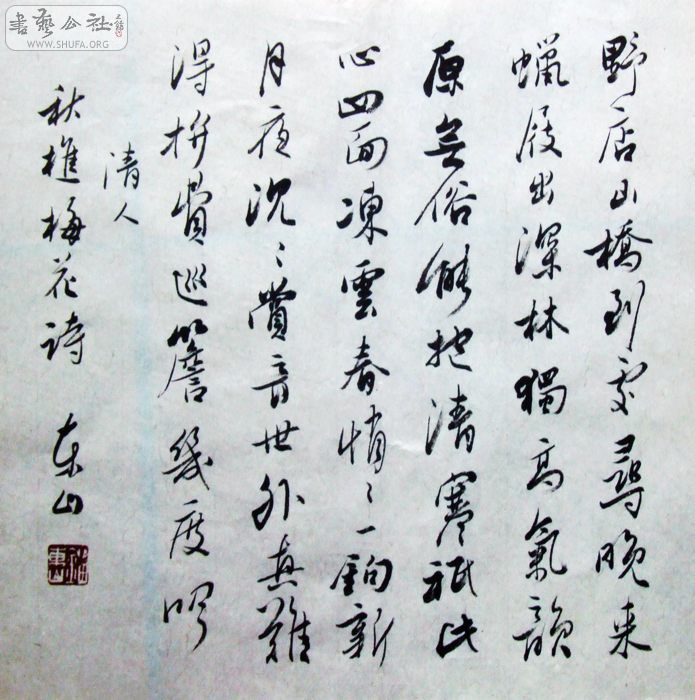 書藝公社
WWW.SHUFA.ORG
野店山橋到處尋晚来
蠟屐出深林獨高氣韻
原無俗能抱清寒祇此
心四面凍雲春悄々一鉤新
月夜沉々賞音世外真難
得拚費巡簷幾度吟
清人
秋樵梅花詩 東山